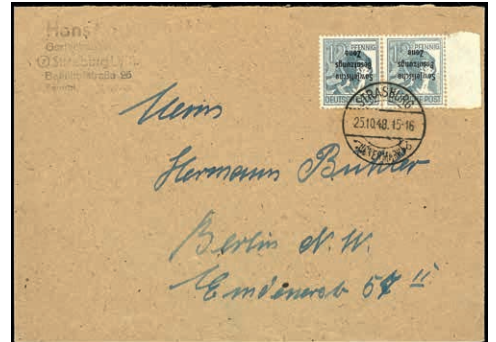 Hans
Straßburg
Bahnhofstraße 26
PFENNIG PFENNIG
Sowjetische Besatzungs Zone
Sowjetische Besatzungs Zone
DEUTSCHE POST
STRASBURG
25.10.48.15-16
(UCKERMARK)
Herrn
Hermann Buhler
Berlin N.W.
Emdenerstr 57 II